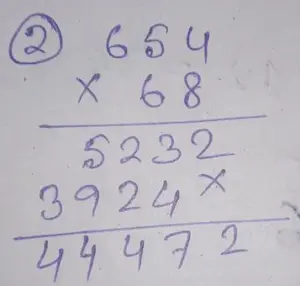 ② 654
× 68
5232
3924×
44472